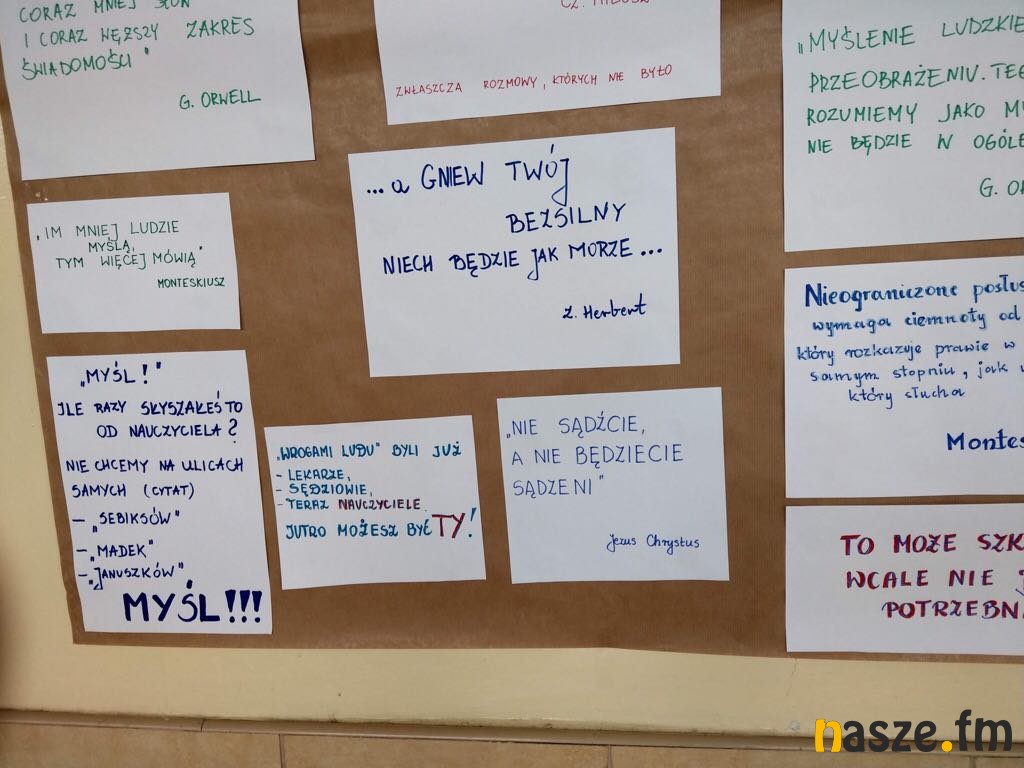 CORAZ MNIEJ SŁÓW
I CORAZ WĘŻSZY ZAKRES
ŚWIADOMOŚCI"
G. ORWELL
CZ. MIŁOSZ
ZWŁASZCZA ROZMOWY, KTÓRYCH NIE BYŁO
„MYŚLENIE LUDZKIE
PRZEOBRAŻENIU. TEG
ROZUMIEMY JAKO
NIE BĘDZIE W OGÓLE
G. OR
„IM MNIEJ LUDZIE
MYŚLĄ,
TYM WIĘCEJ MÓWIĄ"
MONTESKIUSZ
...a GNIEW TWÓJ
BEZSILNY
NIECH BĘDZIE JAK MORZE...
Z. Herbert
Nieograniczone posłus
wymaga ciemnoty od
który rozkazuje prawie w
samym stopniu, jak u
który słucha
Montes
„MYŚL!"
ILE RAZY SŁYSZAŁEŚ TO
OD NAUCZYCIELA?
NIE CHCEMY NA ULICACH
SAMYCH (CYTAT)
– „SEBIKSÓW"
– „MADEK"
– „JANUSZKÓW"
MYŚL!!!
„WROGAMI LUDU" BYLI JUŻ
- LEKARZE,
- SĘDZIOWIE,
- TERAZ NAUCZYCIELE.
JUTRO MOŻESZ BYĆ TY!
„NIE SĄDŹCIE,
A NIE BĘDZIECIE
SĄDZENI"
Jezus Chrystus
TO MOŻE SZK
WCALE NIE J
POTRZEBN
nasze.fm